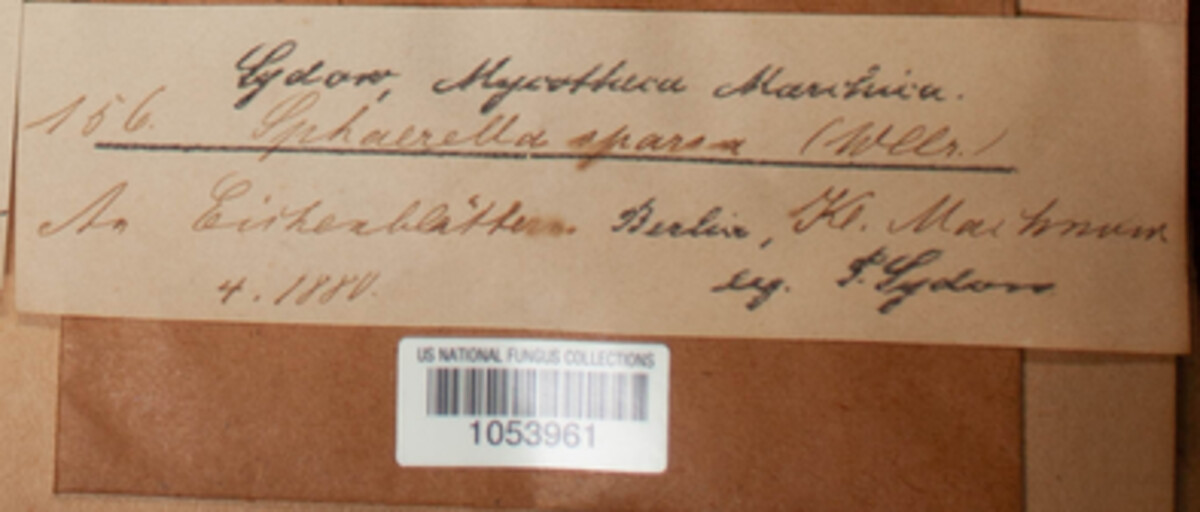 Sydow, Mycotheca Marchica.
156. Sphaerella sparsa (Wllr.)
An Eichenblättern. Berlin, Kl. Machnow
4. 1880. leg. P. Sydow
US NATIONAL FUNGUS COLLECTIONS
1053961